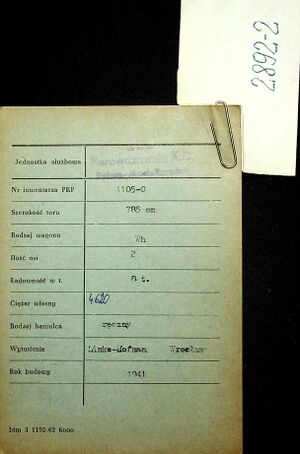 2892-2
Jednostka służbowa Parowozownia
Nr inwentarza PKP 1105-0
Szerokość toru 785 mm
Rodzaj wagonu Wh
Ilość osi 2
Ładowność w t. 8 t.
Ciężar własny 4620
Rodzaj hamulca ręczny
Wytwórnia Linke-Hofman Wrocław
Rok budowy 1941
btm 3 1192-62 6000